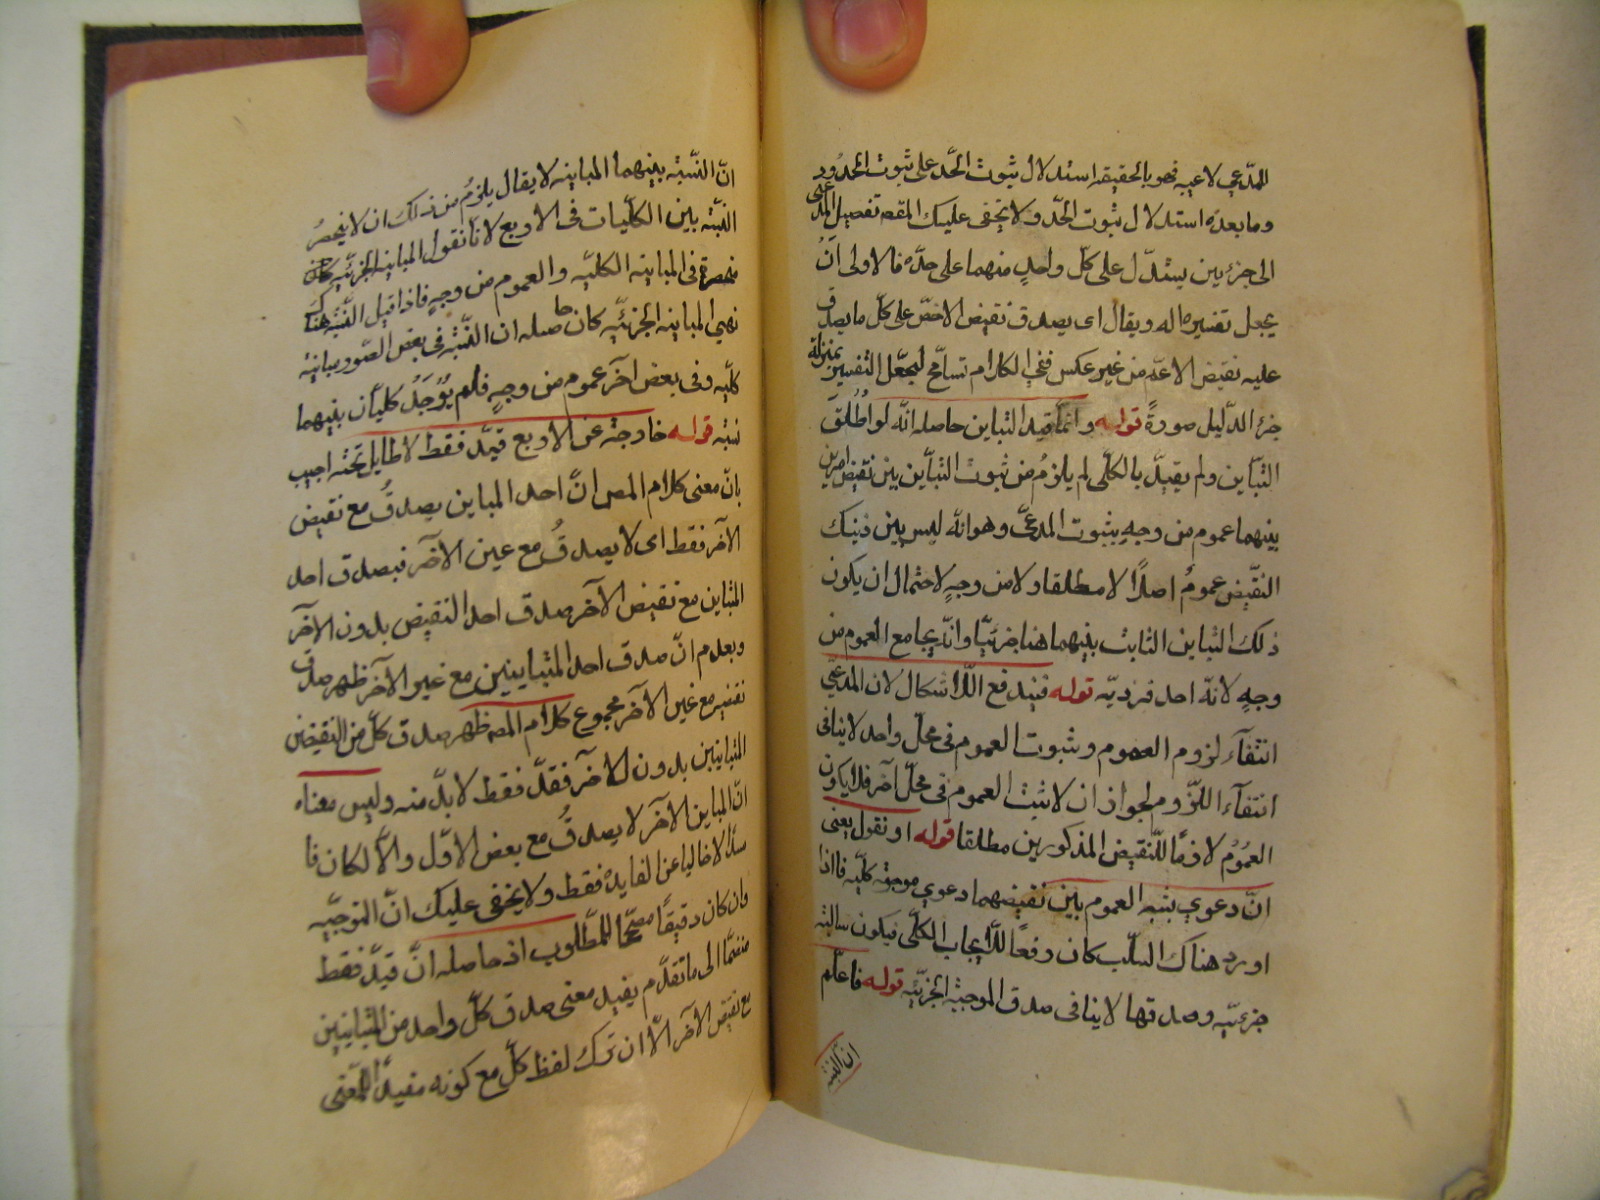 المدّعي لاعينه فهو بالحقيقة استدلال ثبوت الحّد على ثبوت المحدود
وما بعده استدلال ثبوت الحّد ولا يخفى عليك المقصه تفصيل المدعى
الى جزئين يستدّل على كلّ واحدٍ منهما على حدّه فالاولى انَ
يجعل تفسيره له ويقال اى يصدق نقيض الاخصّ على كلّ ما يصدق
عليه نقيض الاعمّ من غير عكس ففى الكلام تسامح لجعل التفسير بمنزلة
جزء الدّليل صورةً قوله وانّما قيد التباين حاصله انّه لو اُطلقَ
التبّاين ولم يقيّد بالكلّى لم يلزمُ من ثبوت التبّاين بين نقيض امرين
بينهما عموم من وجهٍ ثبوت المدعىّ وهو انّه ليس بين ذينك
النقيض عمومُ اصلاً لا مطلقا ولا من وجهٍ لاحتمال ان يكون
ذلك التباين الثابت بينهما هنا جزئيّا وانّه يجامع العموم من
وجهٍ لانّه احد فرديّه قوله فيندفع اللّا اشكال لان المدعىّ
انتفآء لزوم العموم وثبوت العموم فى محلّ واحد لا ينافى
انتفآء اللزّوم لجواز ان لا يثبت العموم فى محلّ آخر فلا يكون
العمُومُ لازمًا للنّقيض المذكورين مطلقا قوله او نقول يعنى
انّ دعوي نسبة العموم بين نقيضهما دعوي موجبة كلّيه فااذا
اورد هناك السلّب كان رفعاً للّايجاب الكلّى فيكون سالبة
جزءيّه وصدقها لا ينافى صدق الموجبة الجزئيّه قوله فاعلم
انّ النسبة
انّ النّسبة بينهما المباينه لا يقال يلزمُ من ذلك ان لا ينحصرُ
النسبة بين الكلّيات فى الاربع لانا نقول المباينه الجزئيّه
منحصرة فى المباينه الكليّه والعموم من وجهٍ فاذا قيل النّسبة هنا
نهى المباينه الجزئيّه كان حاصله ان النّسبة فى بعض الصّور مباينة
كليّه وفى بعض آخر عموم من وجهٍ فلم يُوُجَدُ كليّان بينهما
نسبة قوله خارجة عن الاربع قيّد فقط لا طايل تحته اجيب
بانّ معنى كلام المص انّ احد المباين يصدقُ مع نقيض
الآخر فقط اى لا يصدقُ مع عين الآخر فبصدق احد
المتباين مع نقيض الآخر صدق احد النقيض بدون الآخر
وبعدم انّ صدق احد المتباينين مع غير الآخر ظهر صدق
نقيضه مع غير الآخر مجموع كلام المصه ظهر صدق كلّ من النقيضين
المتباينين بدون الاخر فقيّد فقط لا بدّ منه وليس معناه
انّ المباين الآخر لا يصدقُ مع بعض الاوّل والّا لكان فا
سدًا لا خاليا عن الفايدة فقط ولا يخفى عليك انّ التوجيه
وان كان دقيقًا مصحّحًا للمطلوب اذ حاصله انّ قيّد فقط
منضمّا الى ما تقدّم يفيد معنى صدق كلّ واحد من المتباينين
مع نقيض الآخر الّا ان ترك لفظ كلّ مع كونه مفيدًا للمعنى